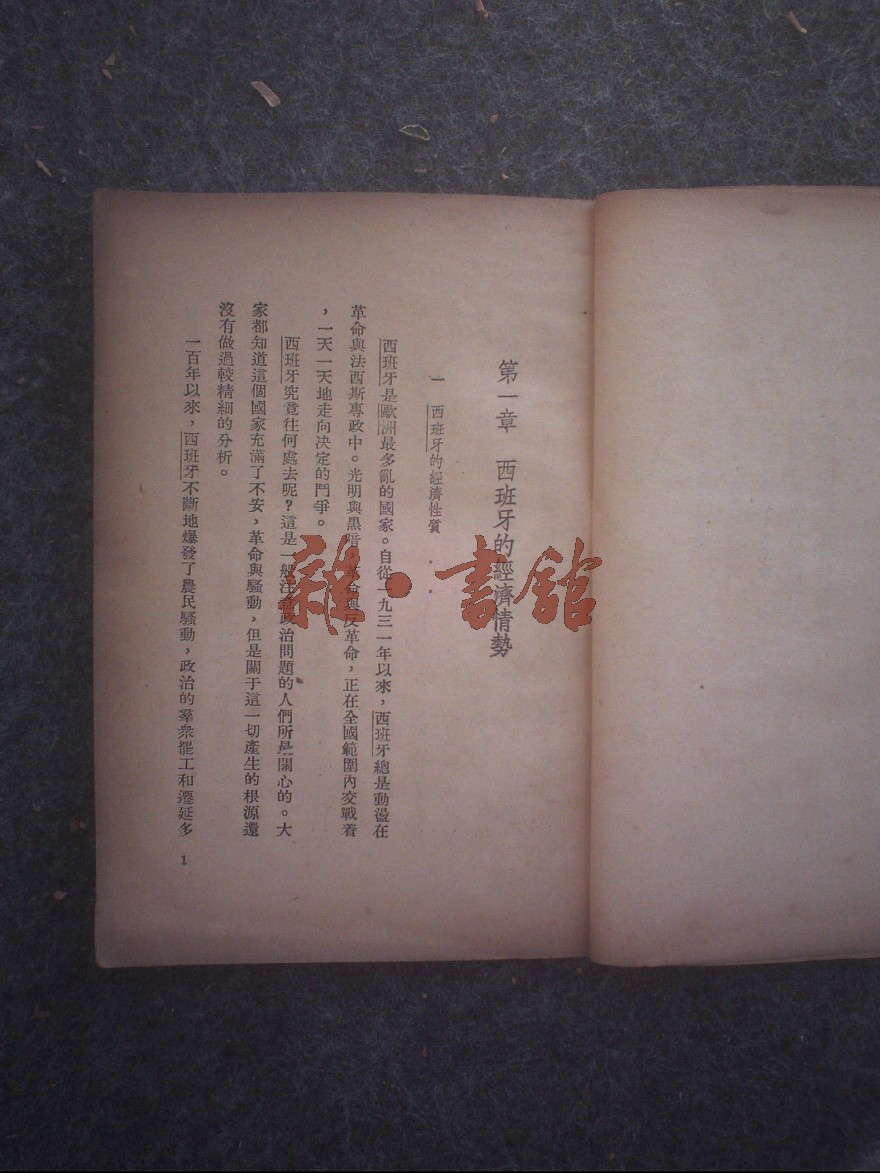 第一章　西班牙的經濟情勢
一　西班牙的經濟性質
西班牙是歐洲最多亂的國家。自從一九三一年以來，西班牙總是動盪在
革命與法西斯專政中。光明與黑暗，革命與反革命，正在全國範圍內交戰着
，一天一天地走向決定的鬥爭。
西班牙究竟往何處去呢？這是一般注意政治問題的人們所是關心的。大
家都知道這個國家充滿了不安，革命與騷動，但是關于這一切產生的根源還
沒有做過較精細的分析。
一百年以來，西班牙不斷地爆發了農民騷動，政治的羣衆罷工和遷延多
1
雜·書館